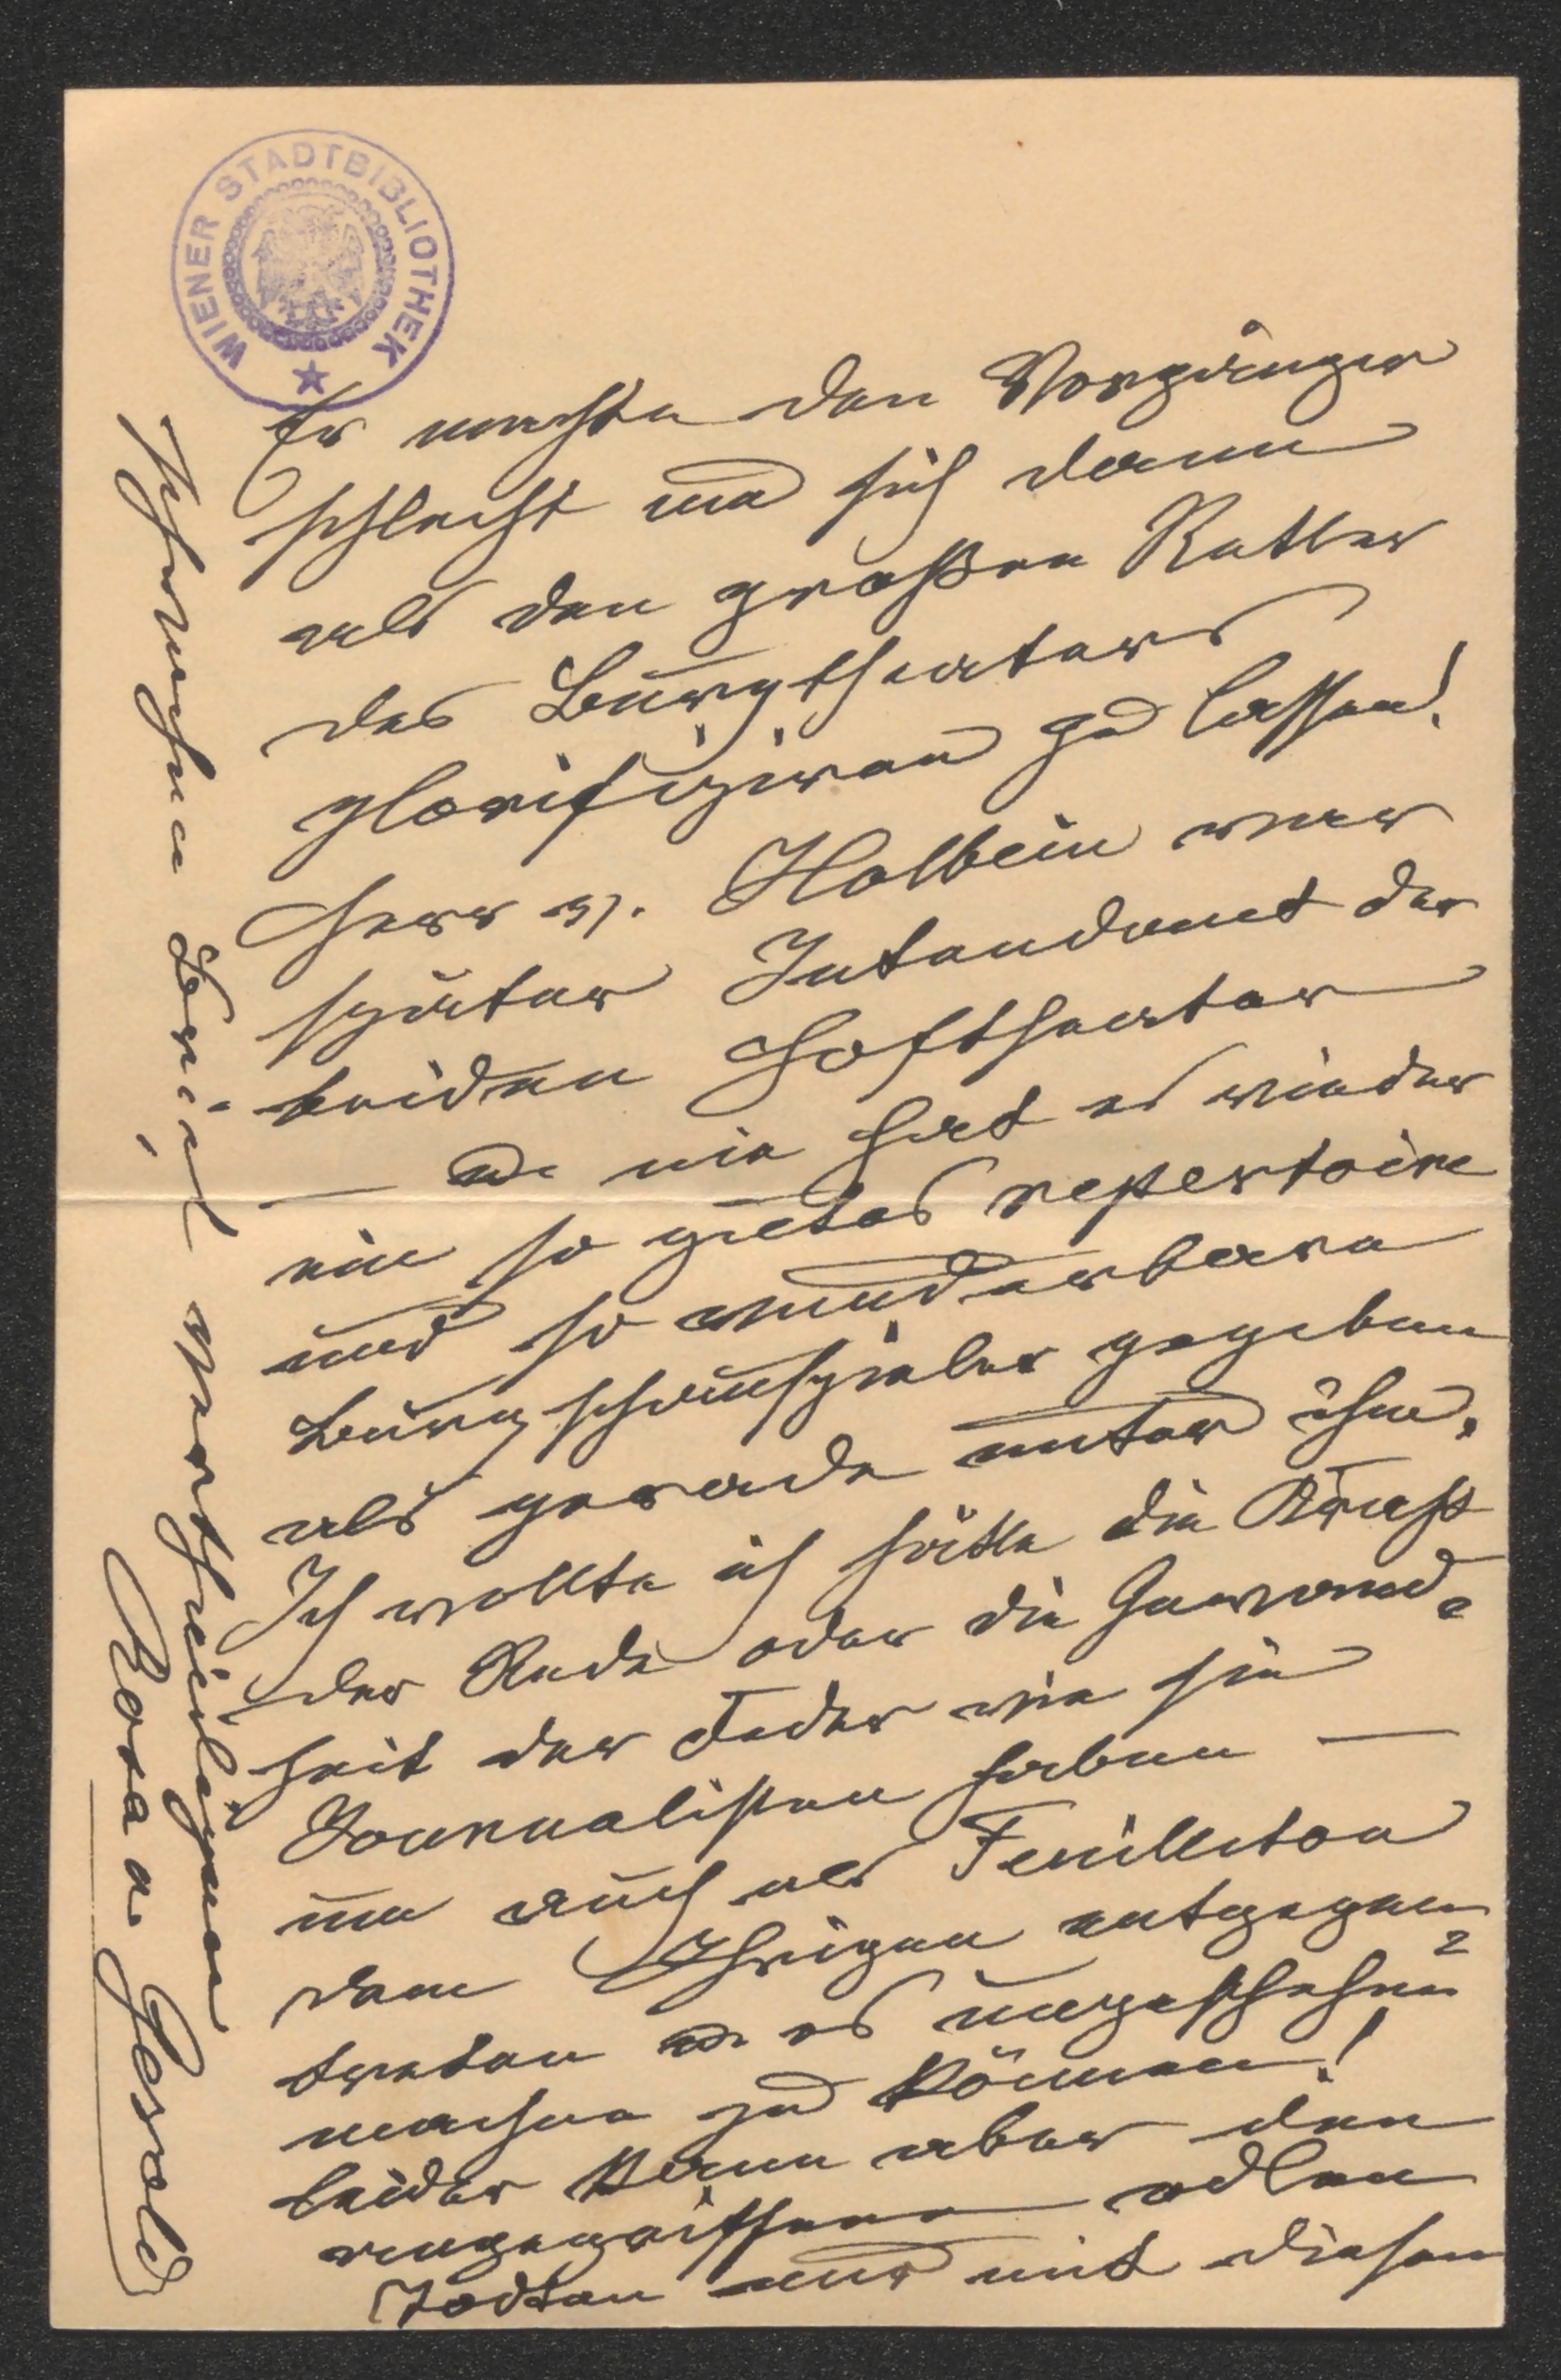 WIENER STADTBIBLIOTHEK
Er machte den Vorgänger
schlecht um sich dann
als den großen Retter
des Burgtheaters
glorifiziren zu lassen!
Herr v. Holbein war
später Intendant der
beiden Hoftheater
— u. nie hat es wieder
ein so gutes repertoire
und so wunderbare
Burgschauspieler gegeben
als gerade unter ihm.
Ich wollte ich hätte die Kraft
der Rede oder die Gewand-
heit der Feder wie sie
Journalisten haben —
um auch als Feuilleton
dem Ihrigen entgegen-
treten u. es ungeschehen
machen zu können!
leider kann aber den
angegriffenen edlen
Todten nur mit diesen
schwachen Brief vertheidigen
Rosa v. Gerold